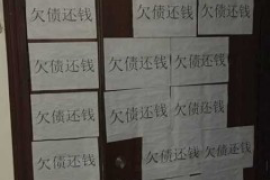 欠债还钱 欠债还钱 欠债还钱
欠债还钱 欠债还钱 欠债还钱
欠债还钱 欠债还钱 欠债还钱
欠债还钱 欠债还钱 欠债还钱